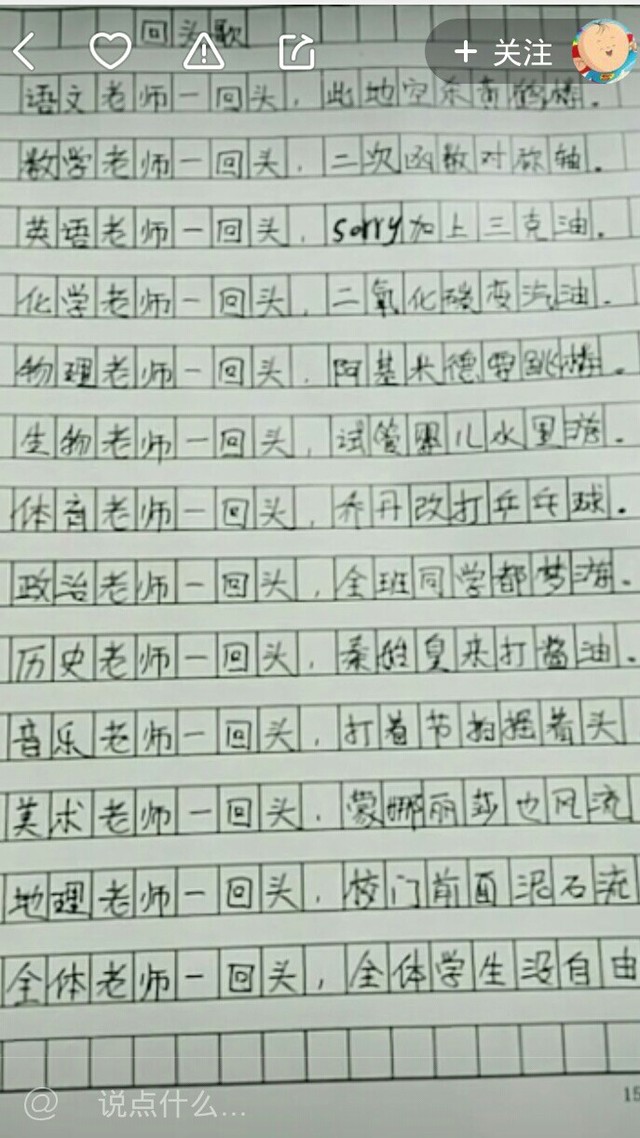 回头歌
+ 关注
语文老师一回头，此地空余黄鹤楼.
数学老师一回头，二次函数对称轴.
英语老师一回头，sorry加上三克油.
化学老师一回头，二氧化碳变汽油.
物理老师一回头，阿基米德要跳楼.
生物老师一回头，试管婴儿水里游.
体育老师一回头，乔丹改打乒乓球.
政治老师一回头，全班同学都梦游.
历史老师一回头，秦始皇来打酱油.
音乐老师一回头，打着节拍摇着头
美术老师一回头，蒙娜丽莎也风流
地理老师一回头，校门前面泥石流
全体老师一回头，全体学生没自由
15
@ 说点什么...